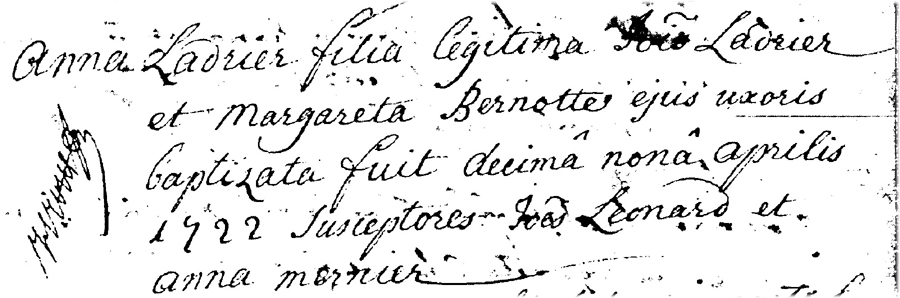 Anna Ladrier filia legitima Jois Ladrier
et Margareta Bernotte ejus uxoris
baptizata fuit decimâ nonâ aprilis
1722 susceptores Joes Leonard et
anna mornier